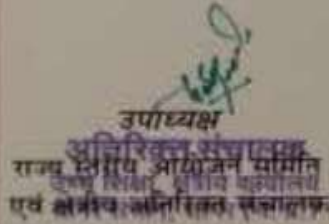 उपाध्यक्ष
अतिरिक्त संचालक
राज्य स्तरीय आयोजन समिति
उच्च शिक्षा,
एवं क्षेत्रीय अतिरिक्त संचालक